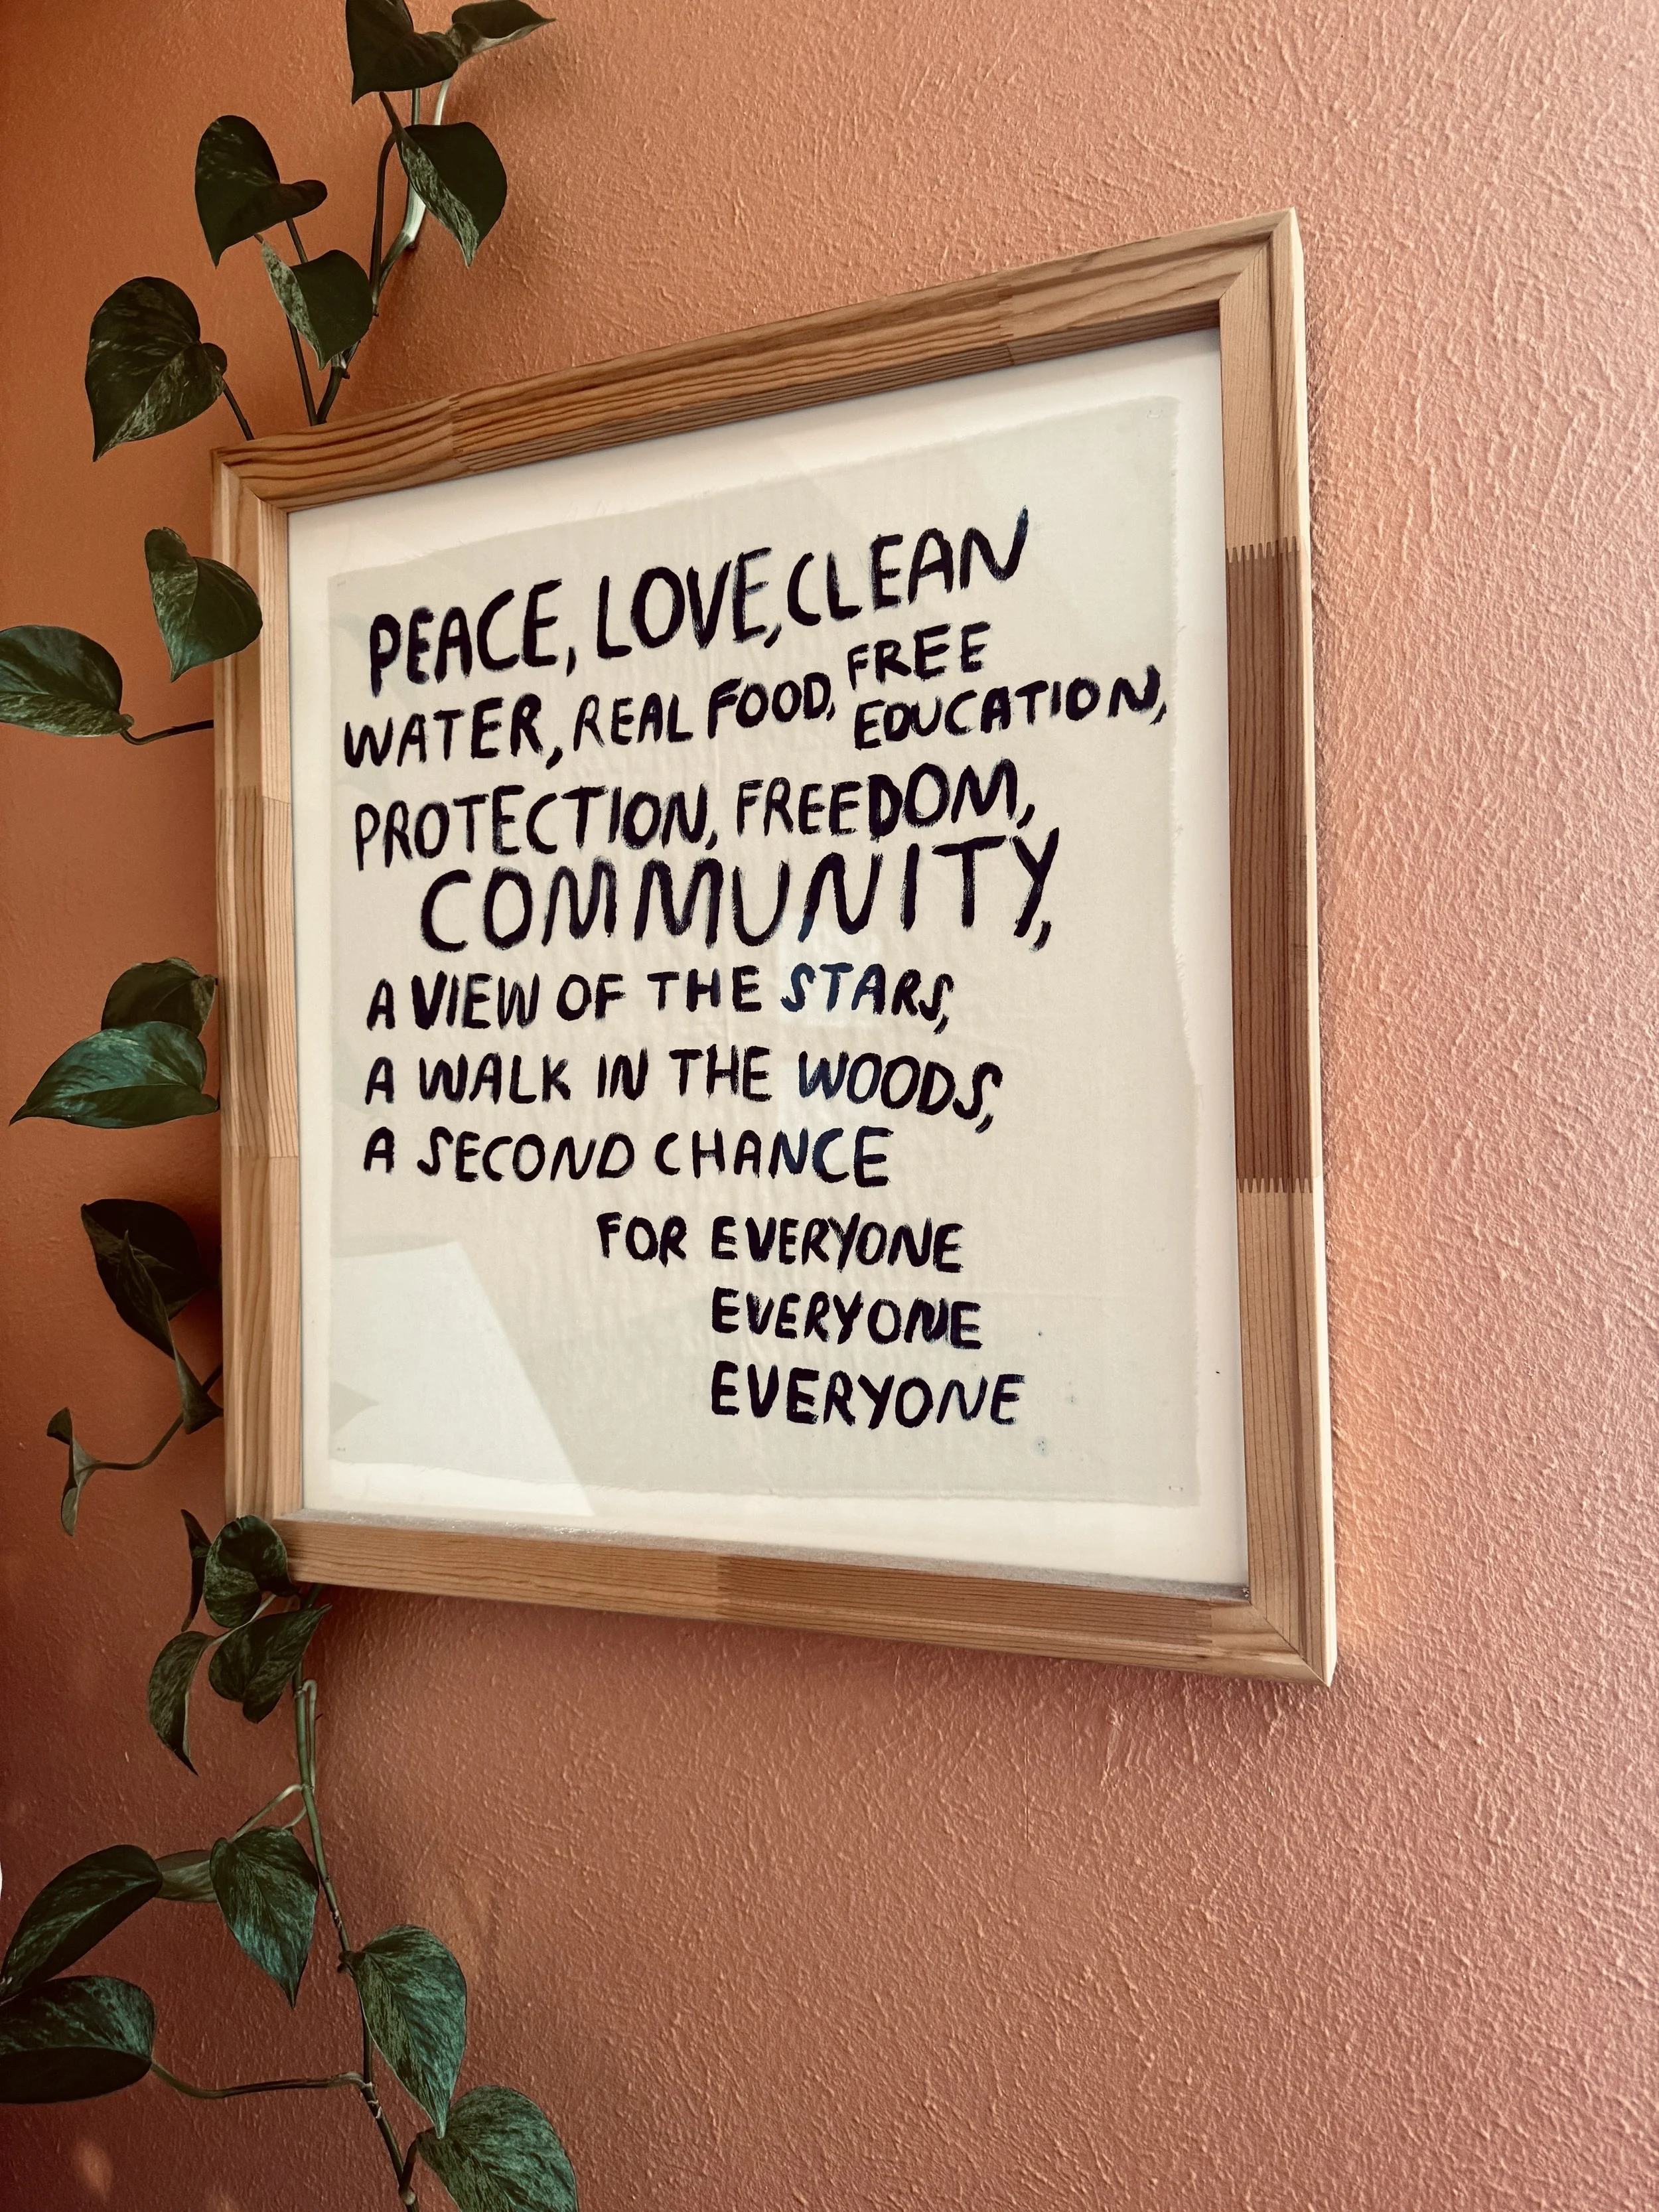 PEACE, LOVE, CLEAN
WATER, REAL FOOD, FREE
EDUCATION,
PROTECTION, FREEDOM,
COMMUNITY,
A VIEW OF THE STARS,
A WALK IN THE WOODS,
A SECOND CHANCE
FOR EVERYONE
EVERYONE
EVERYONE